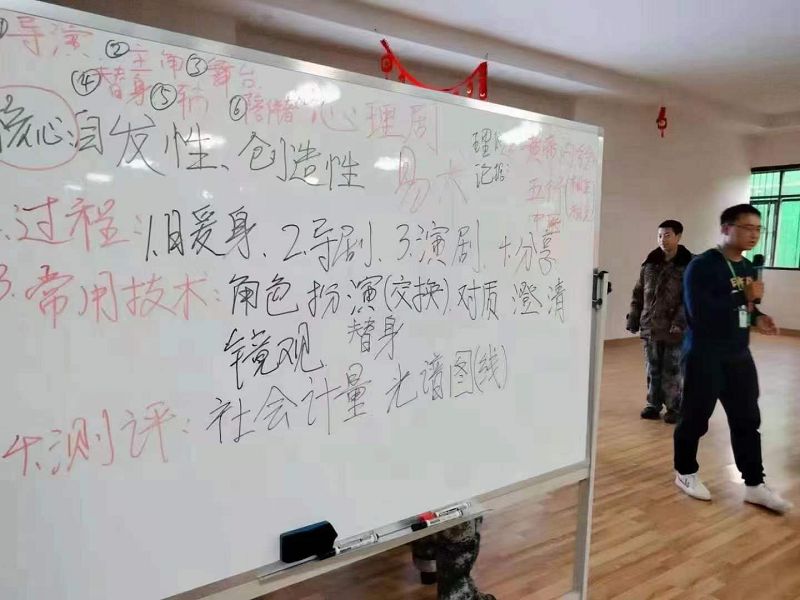 ①导演 ②主角 ③舞台
④替身 ⑤辅 ⑥
心理剧
易术
核心:自发性、创造性
过程:1.暖身、2.导剧、3.演剧、4.分享
3.常用技术:角色扮演(交换).对质 澄清
镜观 替身
4.测评:社会计量 光谱图(线)